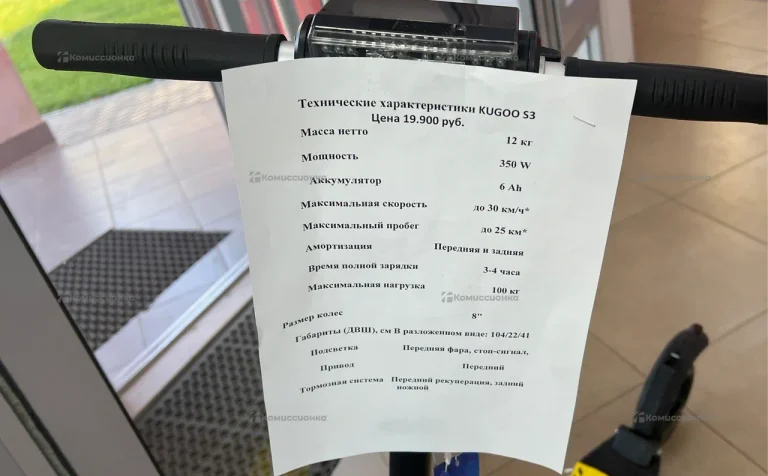 Технические характеристики KUGOO S3
Цена 19.900 руб.
Масса нетто 12 кг
Мощность 350 W
Аккумулятор 6 Ah
Максимальная скорость до 30 км/ч*
Максимальный пробег до 25 км*
Амортизация Передняя и задняя
Время полной зарядки 3-4 часа
Максимальная нагрузка 100 кг
Размер колес 8"
Габариты (ДВШ), см В разложенном виде: 104/22/41
Подсветка Передняя фара, стоп-сигнал,
Привод Передний
Тормозная система Передний рекуперация, задний
ножной
Комиссионка
Комиссионка
Комиссионка
Комиссионка
Комиссионка
Комиссионка
Комиссионка
Комиссионка